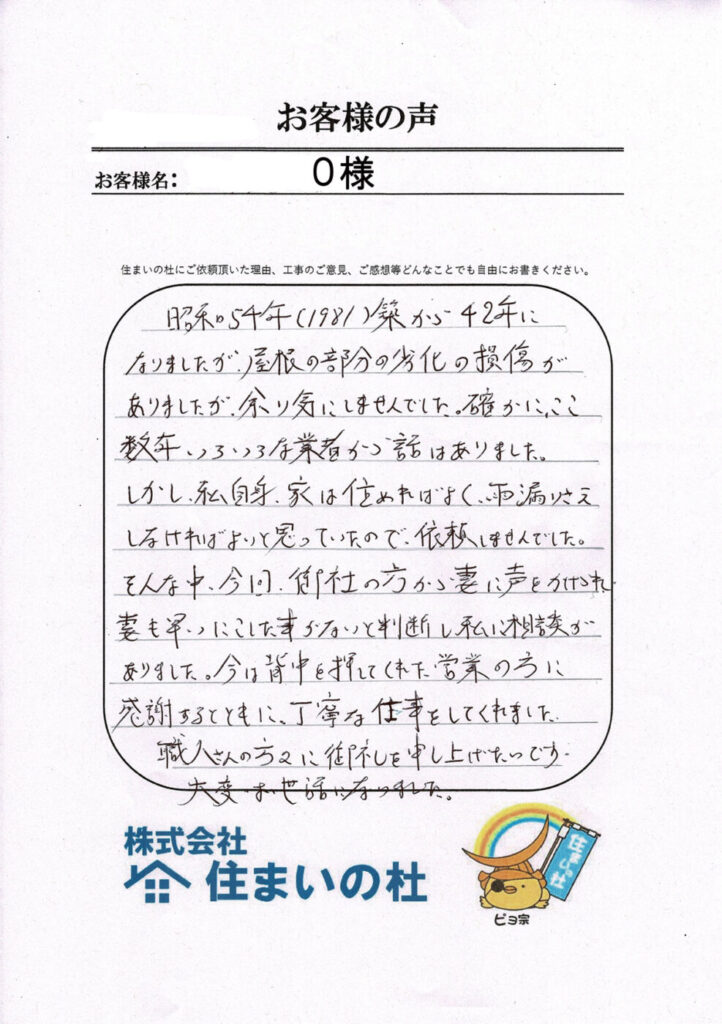 お客様の声
お客様名: O様
住まいの杜にご依頼頂いた理由、工事のご意見、ご感想等どんなことでも自由にお書きください。
昭和54年(1981)築から42年に
なりましたが、屋根の部分の劣化の損傷が
ありましたが、余り気にしませんでした。確かに、ここ
数年、いろいろな業者から話はありました。
しかし、私自身、家は住めればよく、雨漏りさえ
しなければよいと思っていたので、依頼しませんでした。
そんな中、今回、御社の方から妻に声をかけられ
妻も早いにこした事がないと判断し私に相談が
ありました。今は背中を押してくれた営業の方に
感謝するとともに、丁寧な仕事をしてくれました
職人さんの方々に御礼を申し上げたいです。
大変お世話になりました。
株式会社
住まいの杜
住まいの杜
ピヨ宗